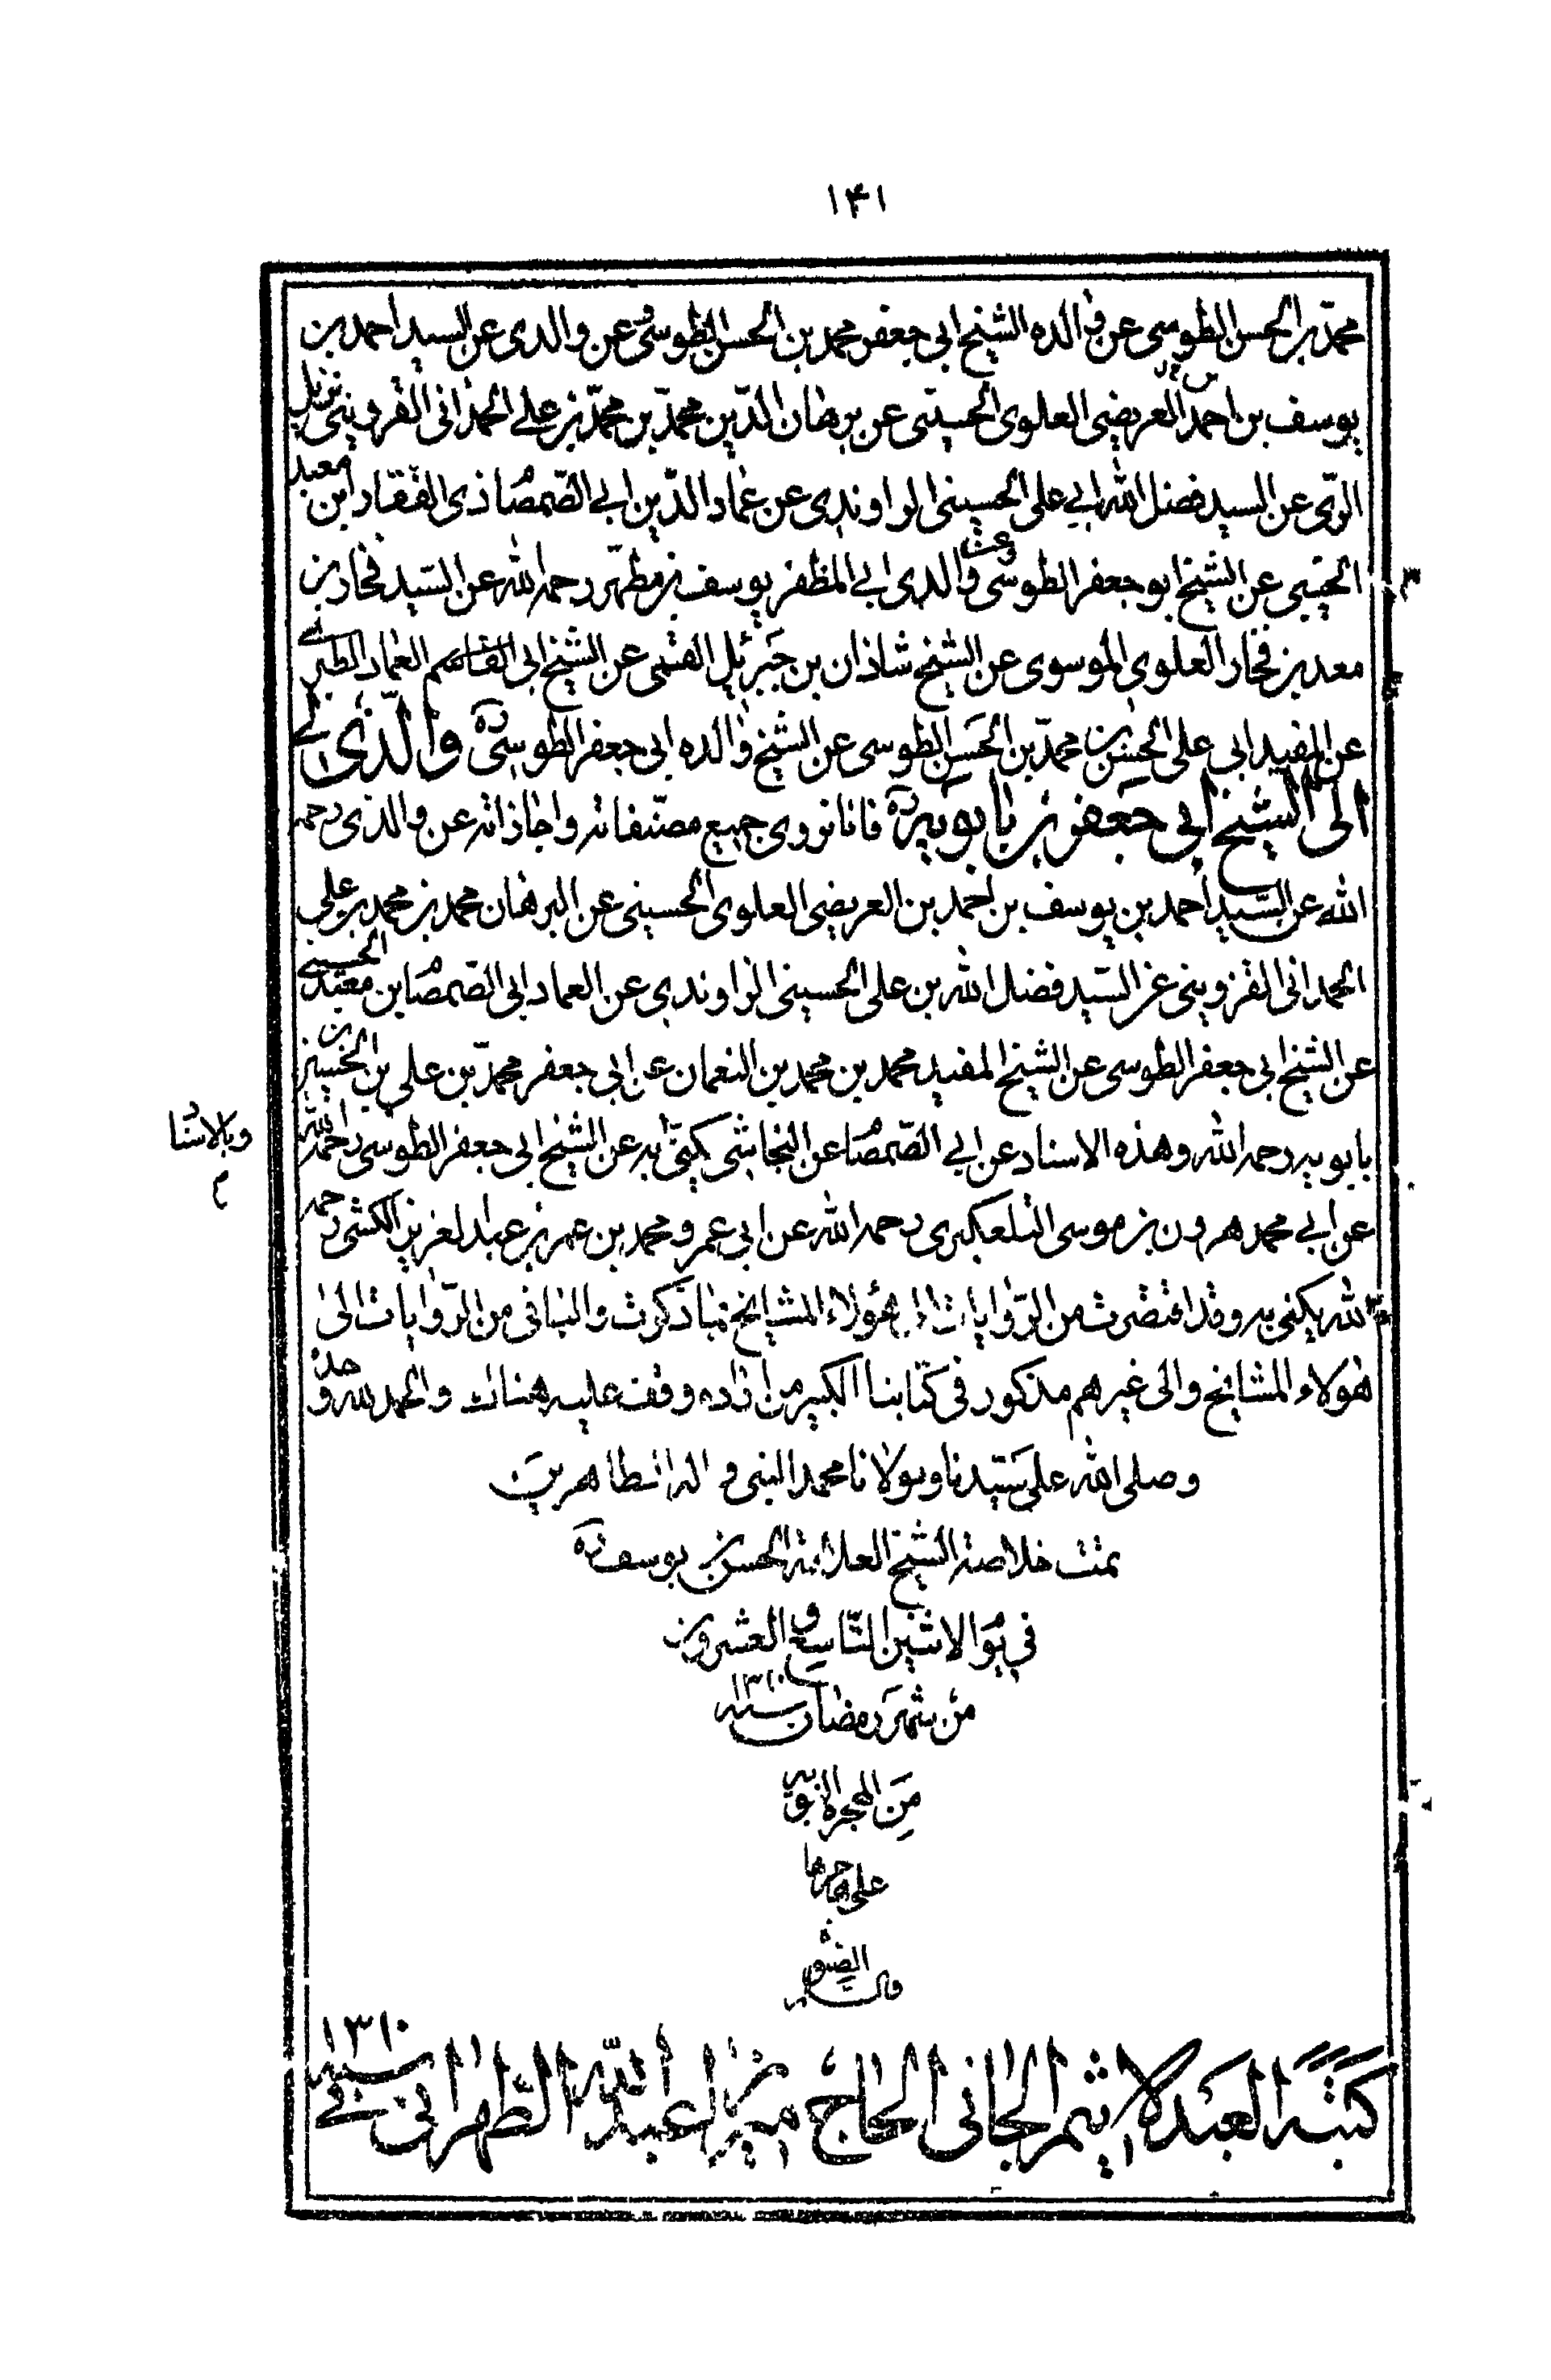 ۱۴۱
محمد بن الحسن الطوسي عن والده الشيخ ابي جعفر محمد بن الحسن الطوسي عن والدي عن السيد احمد بن
يوسف بن احمد العريضي العلوي الحسيني عن برهان الدّين محمّد بن محمّد بن علي الحمداني القزويني نزيل
الرّي عن السيد فضل الله ابي علي الحسيني الراوندي عن عماد الدّين ابي الصّمصا ذي الفقار ابن معبد
الحسني عن الشيخ ابو جعفر الطوسي وعن والدي ابي المظفر يوسف بن مطهّر رحمه الله عن السّيد فخار بن
معد بن فخار العلوي الموسوي عن الشيخ شاذان بن جبرئيل القمّي عن الشيخ ابي القاسم العماد الطبري
عن المفيد ابي علي الحسن بن محمّد بن الحسن الطوسي عن الشيخ والده ابي جعفر الطوسي ره والّذي لي
الى الشيخ ابي جعفر بن بابويه ره فانا نروي جميع مصنّفاته واجازاته عن والدي رحمه
الله عن السّيد احمد بن يوسف بن احمد بن العريضي العلوي الحسيني عن البرهان محمد بن محمد بن علي
الحمداني القزويني عن السّيد فضل الله بن علي الحسيني الراوندي عن العماد ابي الصّمصا بن معبد الحسيني
عن الشيخ ابي جعفر الطوسي عن الشيخ المفيد محمد بن محمد بن النعمان عن ابي جعفر محمّد بن علي بن الحسين بن
بابويه رحمه الله وهذه الاسناد عن ابي الصّمصا عن النجاشي بكتابه عن الشيخ ابي جعفر الطوسي رحمه الله
وبالاسنا
م
عن ابي محمد هرون بن موسى التلعكبري رحمه الله عن ابي عمرو محمد بن عمر بن عبد العزيز الكشي رحمه
الله بكتابه وقد اقتصرت من الرّوايات الى هؤلاء المشايخ بما ذكرت والباقي من الرّوايات الى
هؤلاء المشايخ والى غيرهم مذكور في كتابنا الكبير من اراده وقف عليه هناك والحمد لله وحده
وصلى الله على سيّدنا ومولانا محمد النبي و اله الطاهرين
تمت خلاصة الشيخ العلامة الحسن بن يوسف ره
في يو الاثنين التّاسع و العشرون
من شهر رمضان سنه ۱۳۱۰
من الهجرة النبويه
على هاجرها
كتبه العبد الاثيم الجاني الحاج ميرزا عبد الله الطهراني في سنه ۱۳۱۰